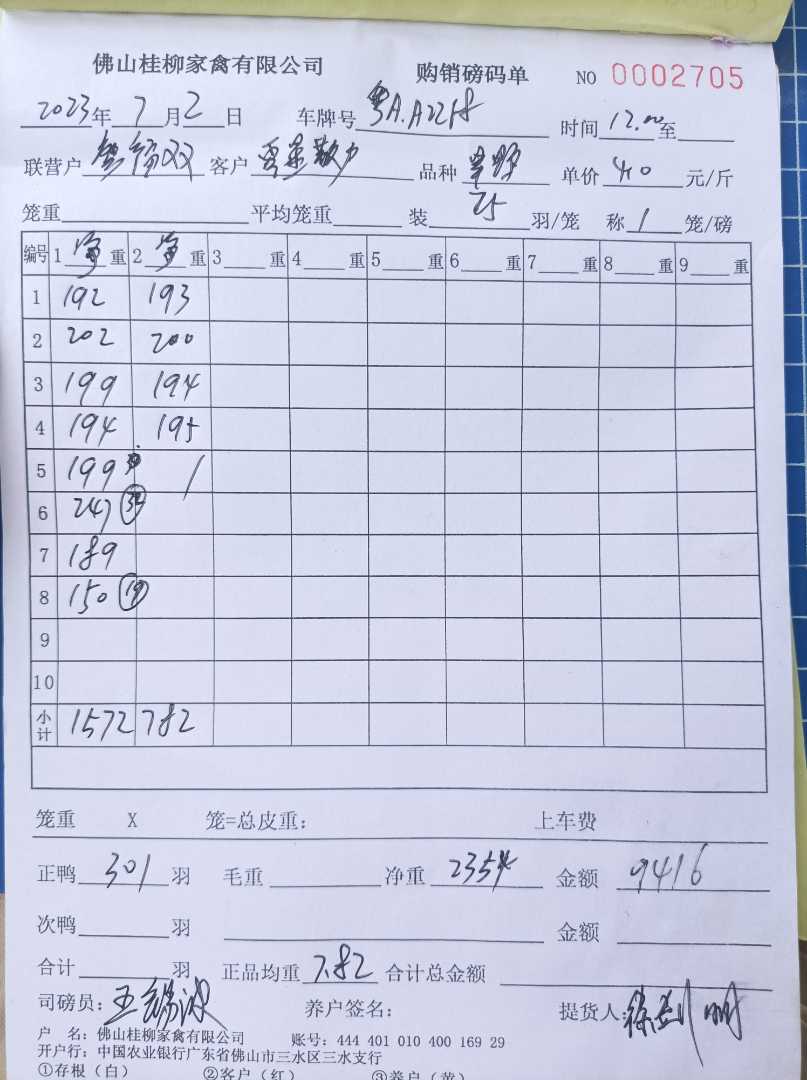 佛山桂柳家禽有限公司 购销磅码单 NO 0002705
2023年 7月2日 车牌号 粤A.A2218 时间 12.00 至
联营户 客户 品种 单价 4.0 元/斤
笼重 平均笼重 装 25 羽/笼 称 1 笼/磅
编号 1 净 重 2 净 重 3 重 4 重 5 重 6 重 7 重 8 重 9 重
1 192 193
2 202 200
3 199 194
4 194 195
5 199 /
6 247
7 189
8 150 19
9
10
小计 1572 782
笼重 X 笼=总皮重: 上车费
正鸭 301 羽 毛重 净重 2354 金额 9416
次鸭 羽 金额
合计 羽 正品均重 7.82 合计总金额
司磅员: 王锡波 养户签名: 提货人:
户 名: 佛山桂柳家禽有限公司 账号: 444 401 010 400 169 29
开户行: 中国农业银行广东省佛山市三水区三水支行
①存根(白) ②客户(红) ③养户(黄)